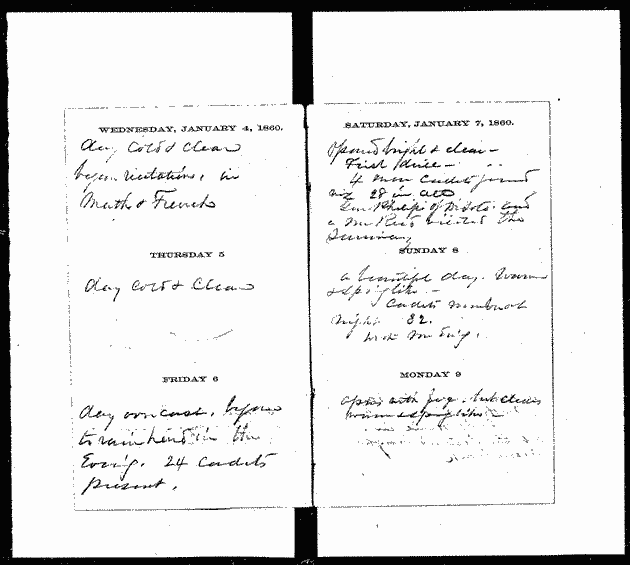 WEDNESDAY, JANUARY 4, 1860.
day cold & clear
began recitations, in
Maths & French
THURSDAY 5
day cold & clear
FRIDAY 6
day overcast, began
to rain hard in the
Evening. 24 cadets
present.
SATURDAY, JANUARY 7, 1860.
opened bright & clear —
First drill —
4 more cadets joined
28 in all
Gen. and
a Mr visited the
Seminary
SUNDAY 8
a beautiful day. warm
& spring like. —
Cadets number at
night 32.
MONDAY 9
opens with fog. but clears
warm & spring like